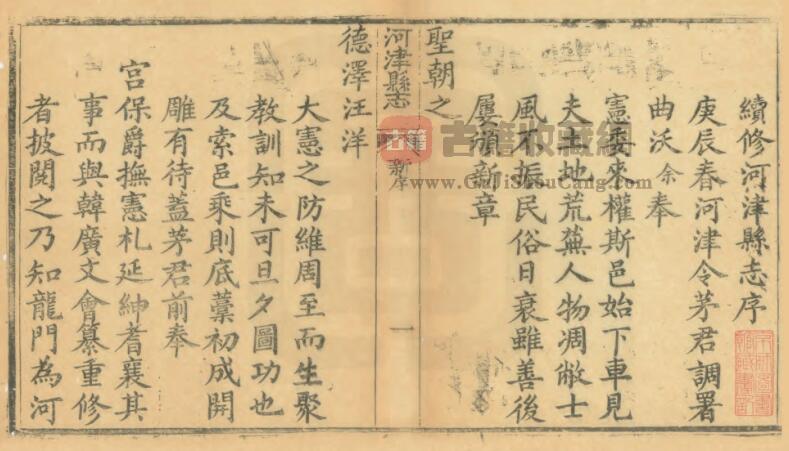 續修河津縣志序
庚辰春河津令茅君調署
曲沃余奉
憲委來權斯邑始下車見
夫土地荒蕪人物凋敝士
風不振民俗日衰雖善後
屢頒新章
聖朝之
河津縣志
新序
一
德澤汪洋
大憲之防維周至而生聚
教訓知未可旦夕圖功也
及索邑乘則底藁初成開
雕有待蓋茅君前奉
宮保爵撫憲札延紳耆襄其
事而與韓廣文會纂重修
者披閱之乃知龍門為河
古籍
古籍收藏網
www.GuJiShouCang.com